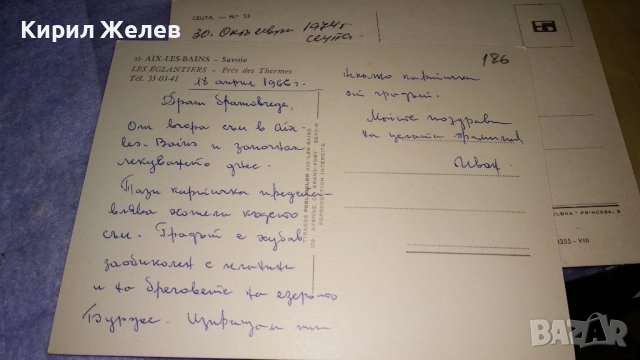 Кирил Желев
CEUTA. — Nº 53
30. Октомври 1974г.
Сеута.
186
51- AIX-LES-BAINS - Savoie
LES EGLANTIERS - Près des Thermes
Tél. 35-03-41
18 април 1966 г.
Драги братовчеде,
От вчера съм в Aix-
les-Bains и започнах
лекуването днес.
Тази картичка предста-
влява хотела където
съм. Градът е хубав
заобиколен с планини
и на бреговете на езерото
Бурже. Изпращам ти
няколко картички
от градът.
Много поздрави
на цялата фамилия
Иван
TIRAGES PUBLICOLOR AIX-LES-BAINS
109, AVENUE DU GRAND-PORT SAVOIE
REPRODUCTION INTERDITE
PRINCESA, 9
1355 - VIII
BAZAR.bg